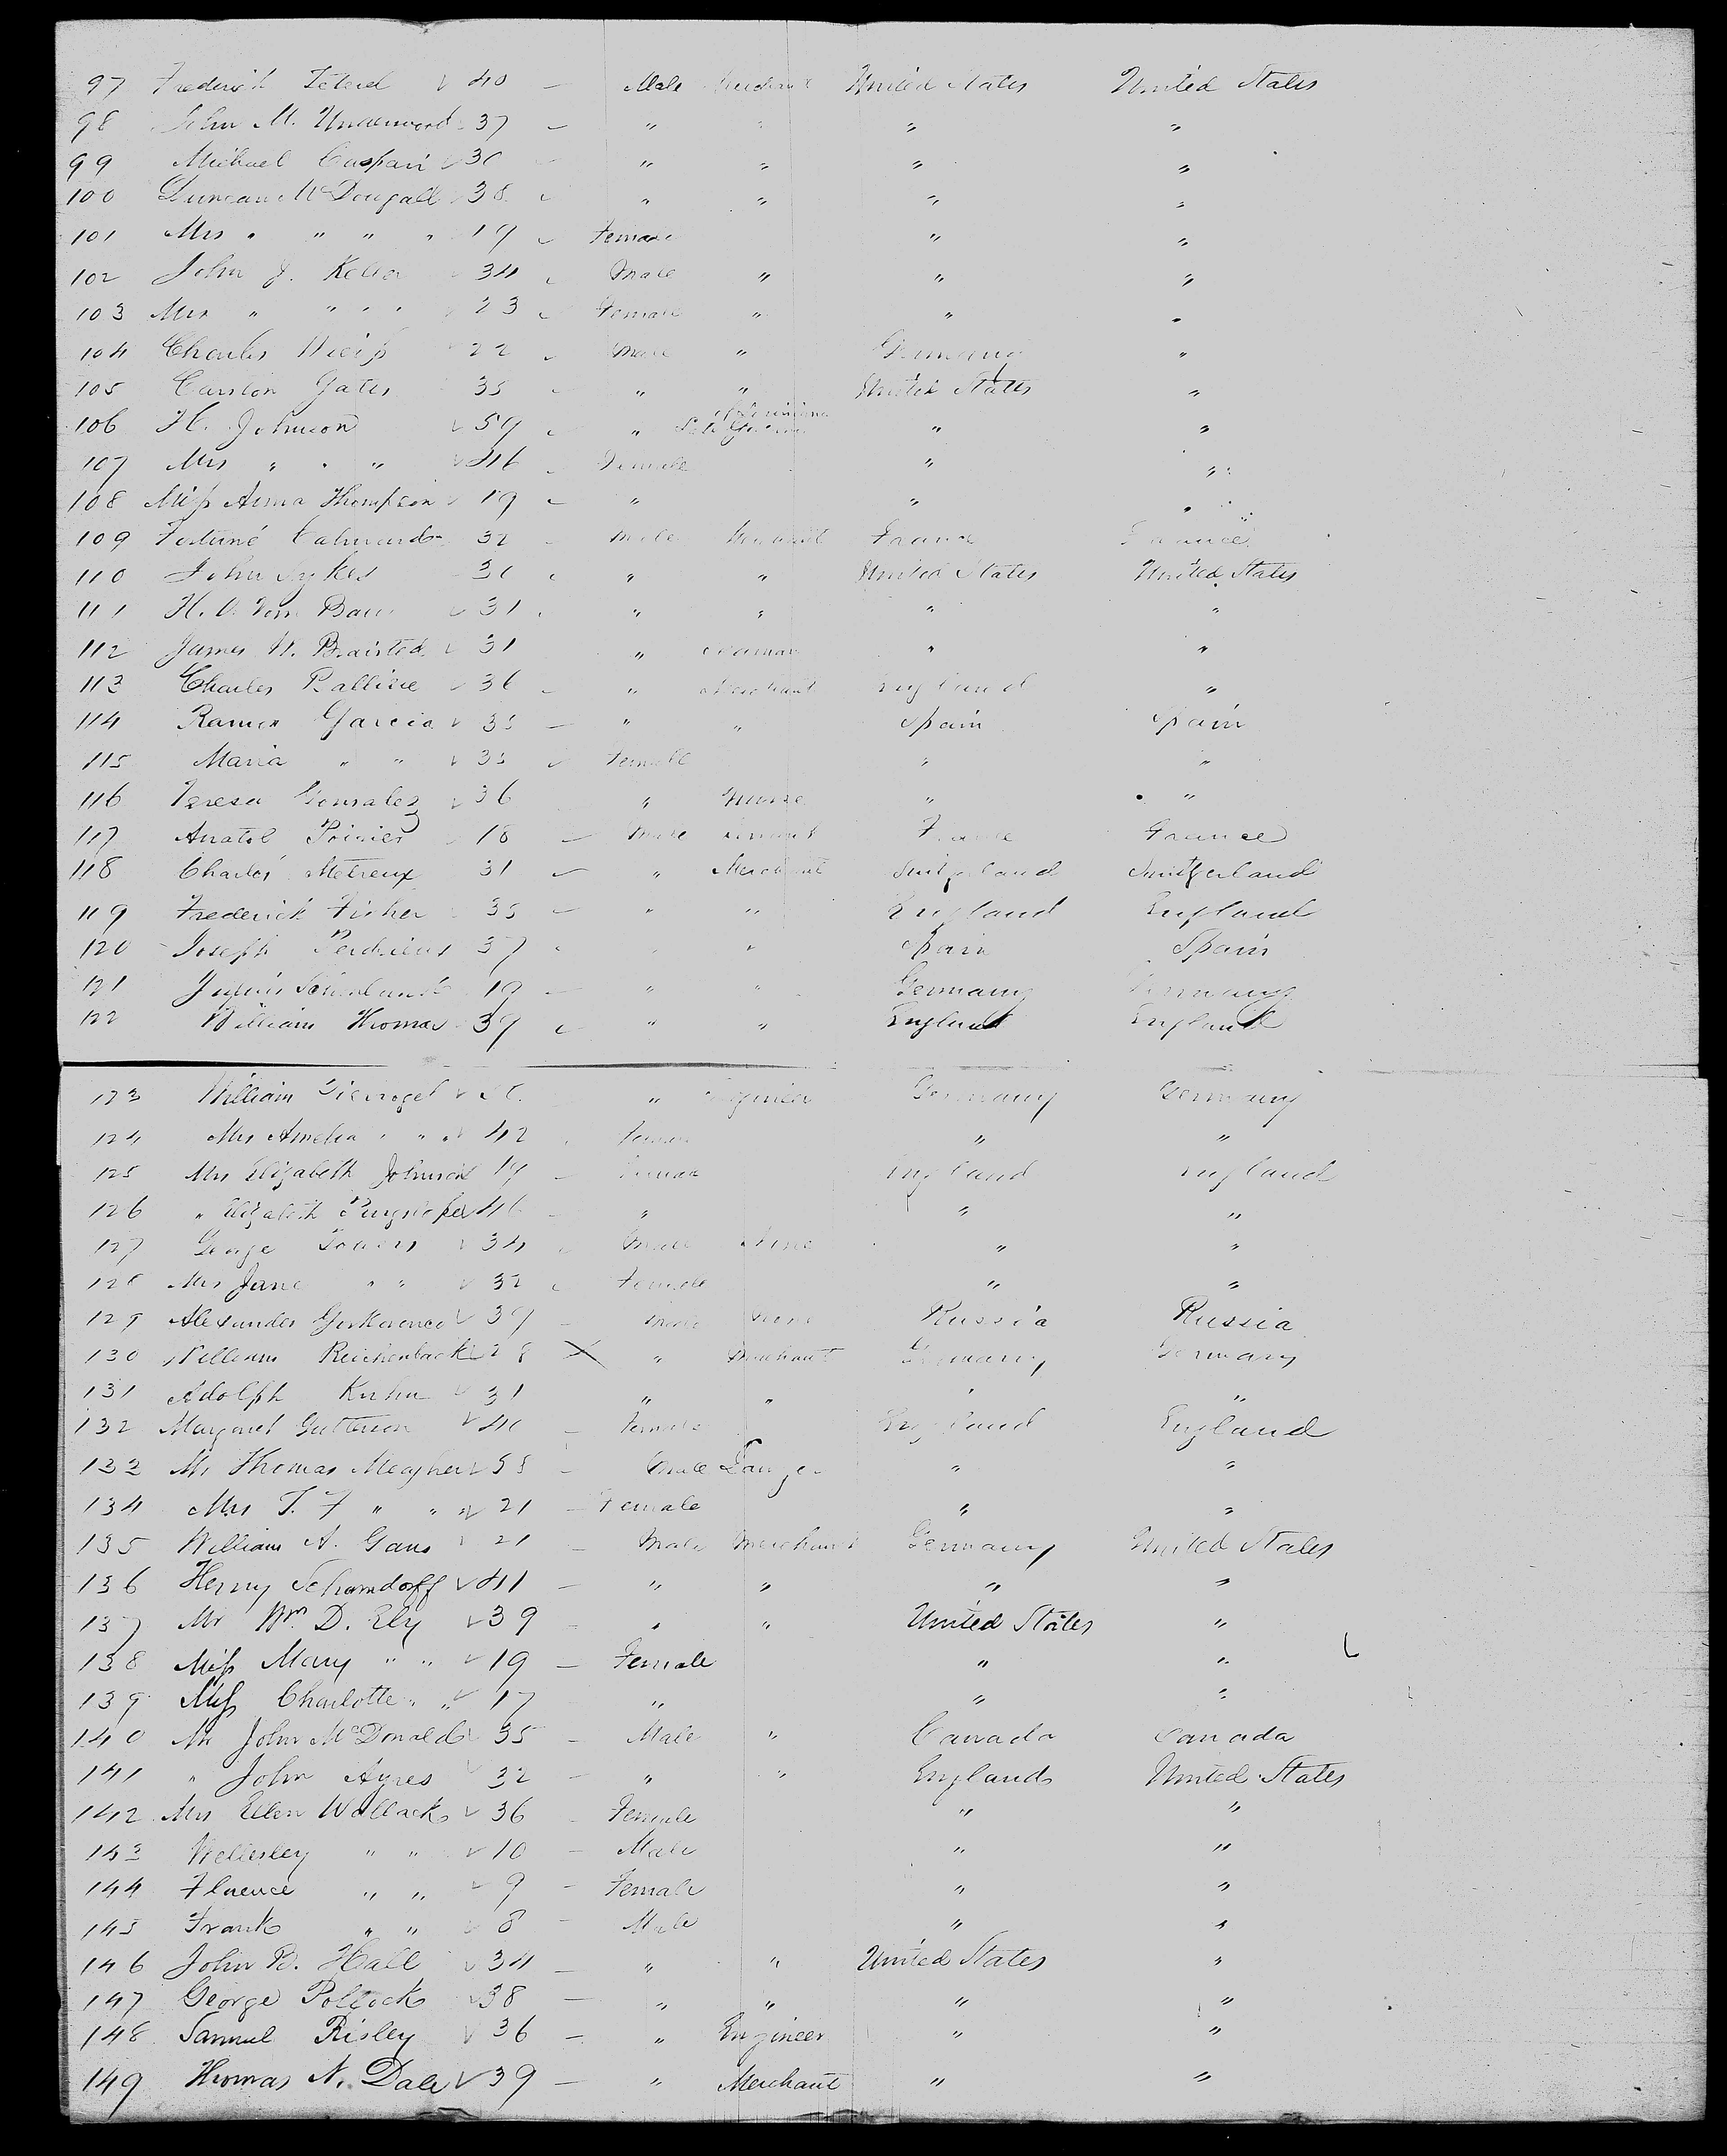 97 Frederick 40 Male Merchant United States United States
98 John M. Underwood 37 " " " "
99 Michael Caspari 30 " " " "
100 Duncan McDougall 38 " " " "
101 Mrs " " " " 19 Female " "
102 John J. Keller 34 Male " " "
103 Mrs " " " " 23 Female " " "
104 Charles Weiss 22 Male " Germany "
105 Carslon Gates 35 " " United States "
106 H. Johnson 59 " " "
107 Mrs " " " 46 Female " "
108 Miss Anna Thompson 19 " " "
109 Fortuné 32 Male Merchant France France
110 John Sykes 30 " " United States United States
111 H. V. Vom Baur 31 " " " "
112 James W. Braisted 31 " Seaman " "
113 Charles 36 " Merchant England "
114 Ramon Garcia 35 " " Spain Spain
115 Maria " " 35 Female " "
116 Teresa Gonzalez 36 " Nurse " "
117 Anatol Poirier 18 Male Servant France France
118 Charles Metreux 31 " Merchant Switzerland Switzerland
119 Frederick Fisher 35 " " England England
120 Joseph 37 " " Spain Spain
121 19 " " Germany Germany
122 William Thomas 39 " " England England
123 William " Engineer Germany Germany
124 Mrs Amelia " " " 42 Female " "
125 Mrs Elizabeth Johnson 19 Female England England
126 " Elizabeth 46 " " "
127 George Towers 34 Male None " "
128 Mrs Jane " " 32 Female " "
129 Alexander 39 Male None Russia Russia
130 William Reichenback 28 " Merchant Germany Germany
131 Adolph Kuhn 31 " " " "
132 Margaret 40 Female England England
133 Mr Thomas Meagher 55 Male " "
134 Mrs T. F " " " 21 Female " "
135 William A. Gans 21 Male Merchant Germany United States
136 Henry Schomdorff 41 " " " "
137 Mr Wm D. Ely 39 " " United States "
138 Miss Mary " " 19 Female " "
139 Miss Charlotte " " 17 " " "
140 Mr John McDonald 35 Male " Canada Canada
141 " John Ayres 32 " " England United States
142 Mrs Ellen Wallack 36 Female " "
143 Wellesley " " 10 Male " "
144 Florence " " 9 Female " "
145 Frank " " 8 Male " "
146 John B. Hall 34 " " United States "
147 George Pollock 38 " " " "
148 Samuel Risley 36 " Engineer " "
149 Thomas N. Dale 39 " Merchant " "